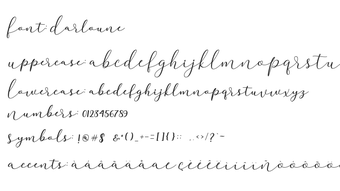 font darloune
uppercase: abcdefghijklmnopqrstu
lowercase: abcdefghijklmnopqrstuvwxyz
numbers: 0123456789
symbols: !@#$ &*()_+-=[]{}:; ,.<>/?~
accents: àáâãäåæçèéêëìíîïñòóôõö